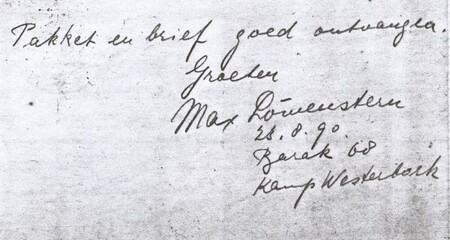 Pakket en brief goed ontvangen.
Groeten
Max Löwenstern
28.8.90.
Barak 68
Kamp Westerbork